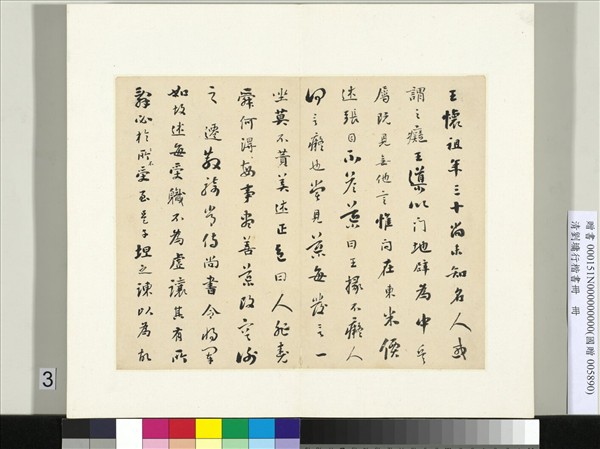 王懷祖年三十尚未知名人或
謂之癡王導以門地辟為中兵
屬既見無他言惟問在東米價
述張目不答導曰王掾不癡人
何言癡也嘗見導每發言一
坐莫不贊美述正色曰人非堯
舜何得每事盡善導改容謝
之遷散騎常侍尚書令將軍
如故述每受職不為虛讓其有所
辭必於所不受至是子坦之諫以為故
贈書 000151N000000000(國贈 005890)
清劉墉行楷書冊 冊
3